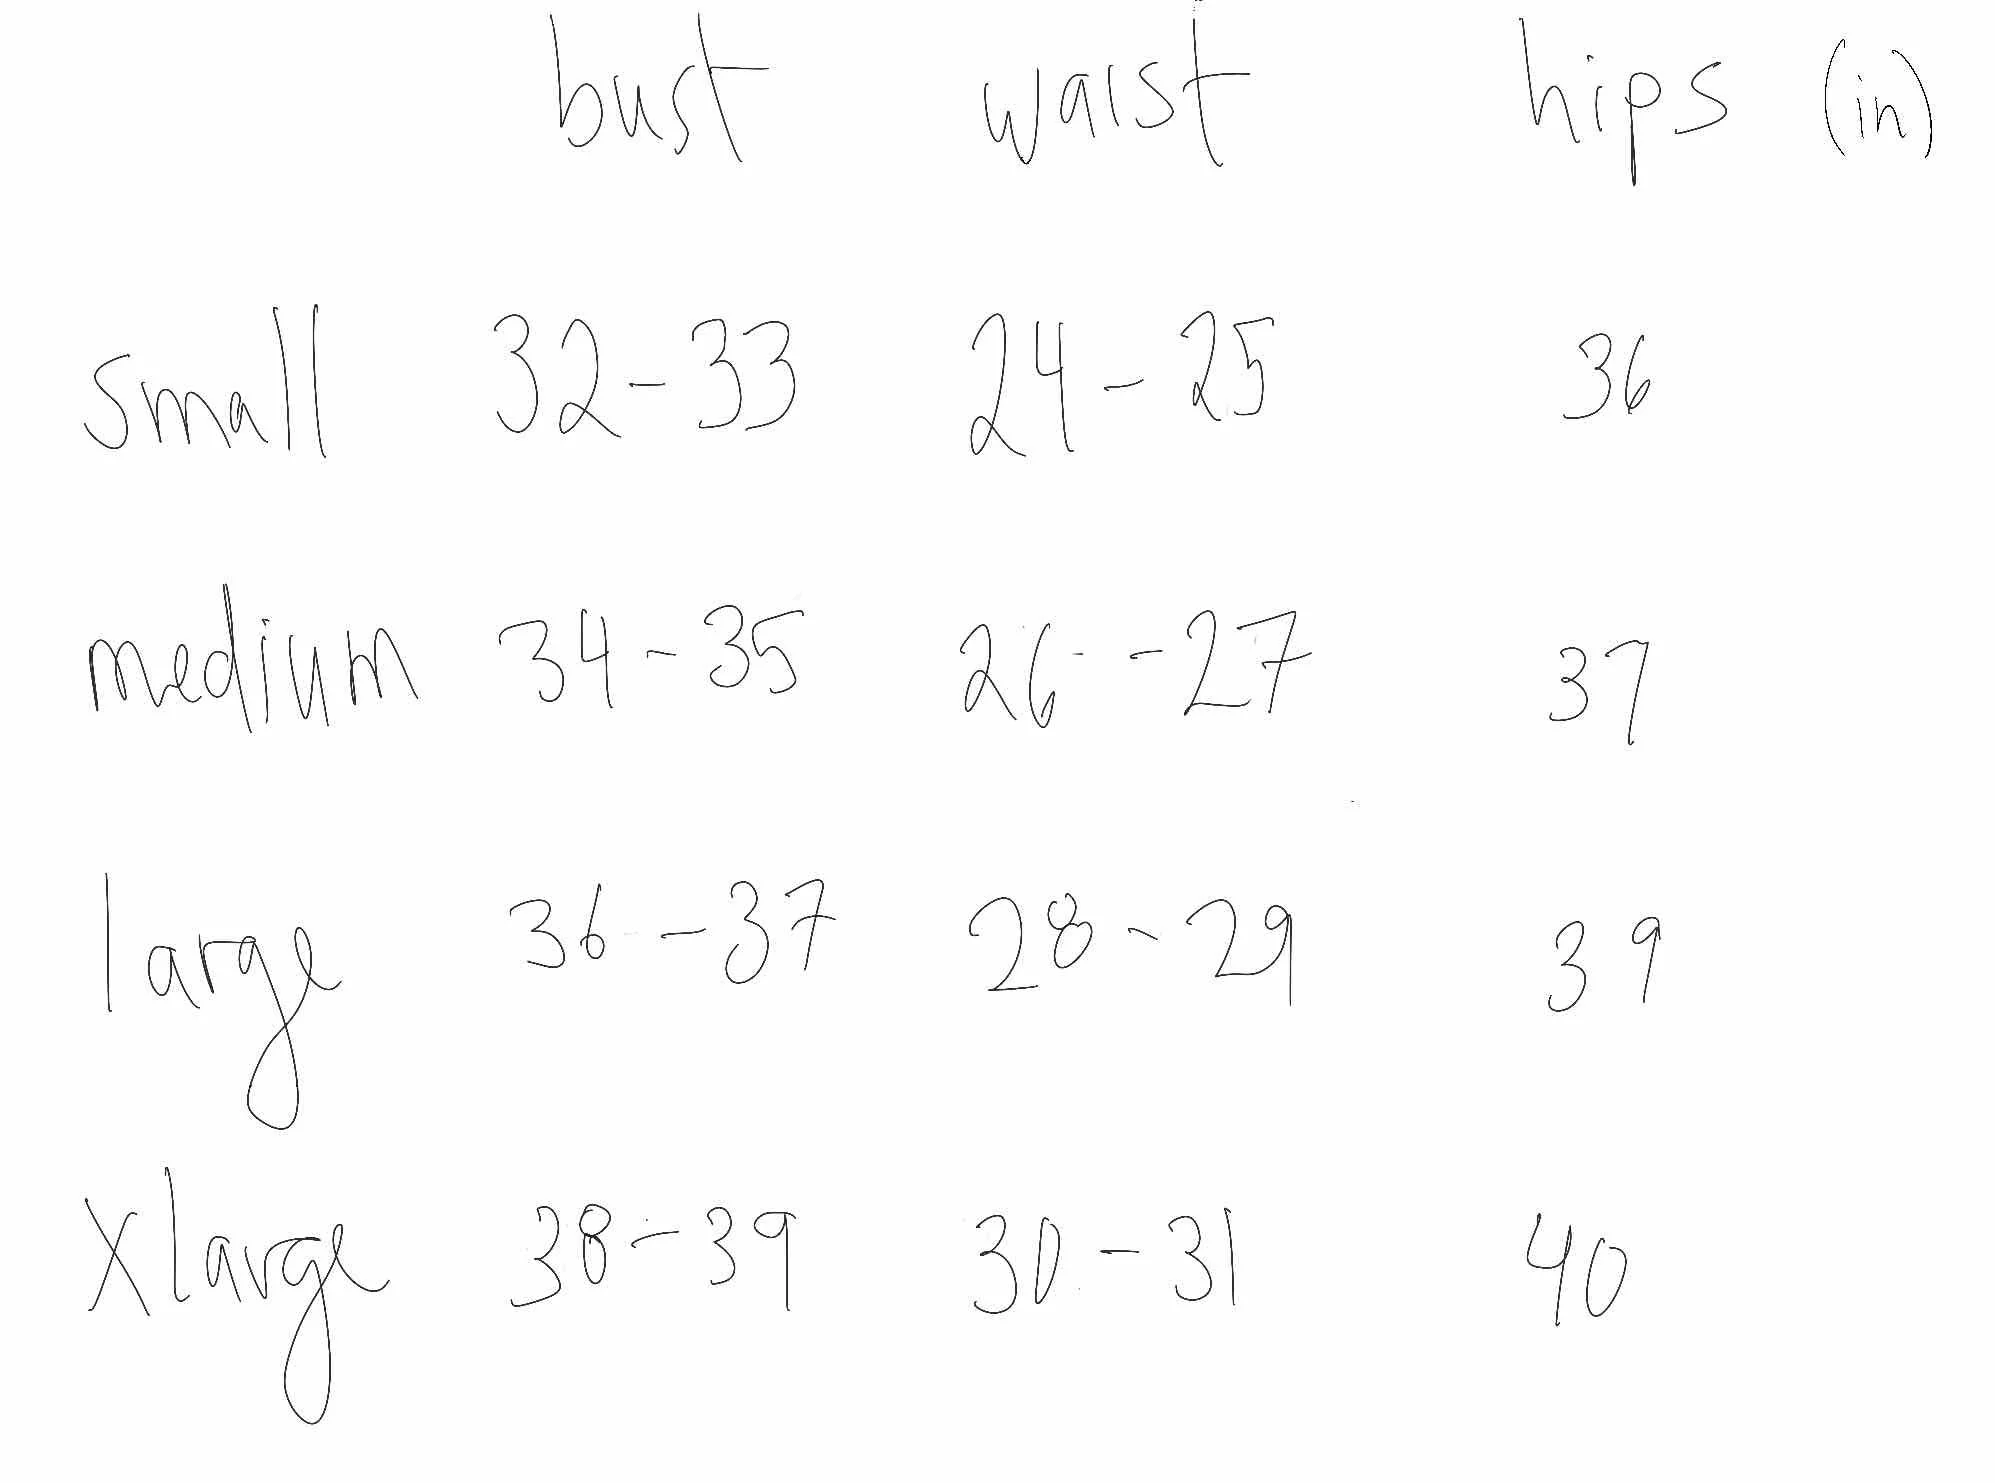 bust waist hips (in)
small 32-33 24-25 36
medium 34-35 26-27 37
large 36-37 28-29 39
Xlarge 38-39 30-31 40